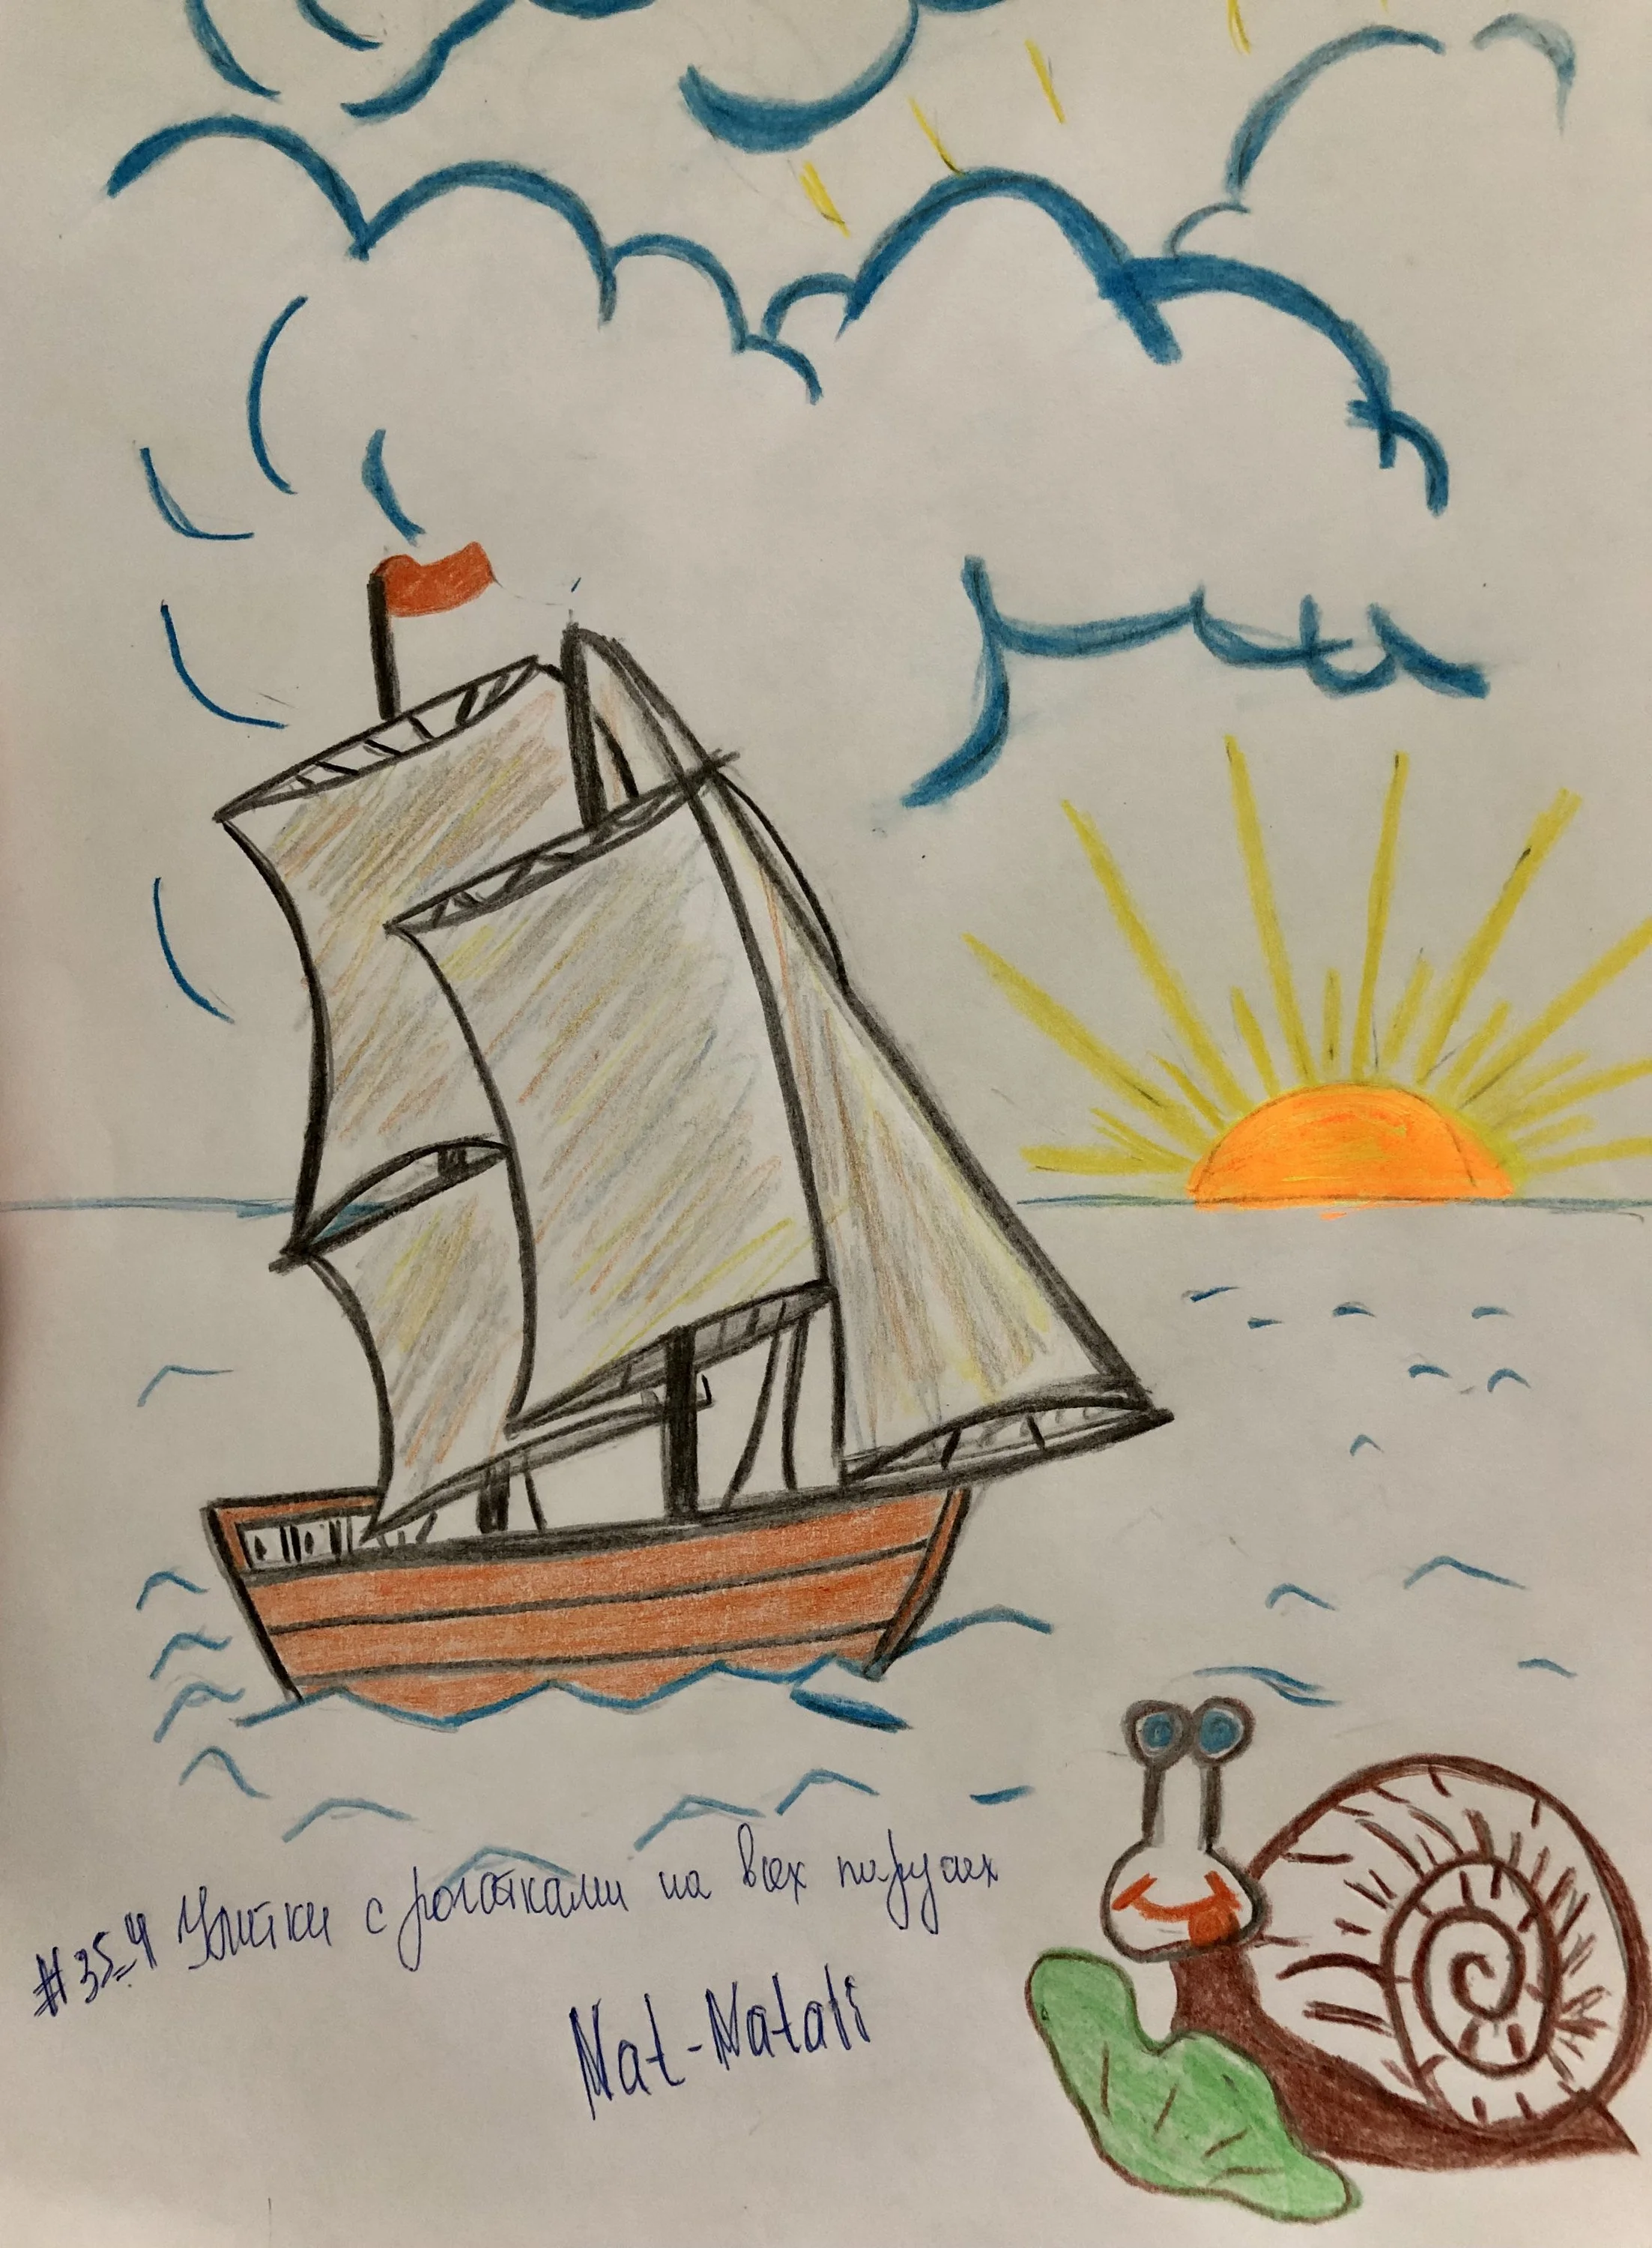 #35-4 Улитки с рогатками на всех парусах
Nat-Natali